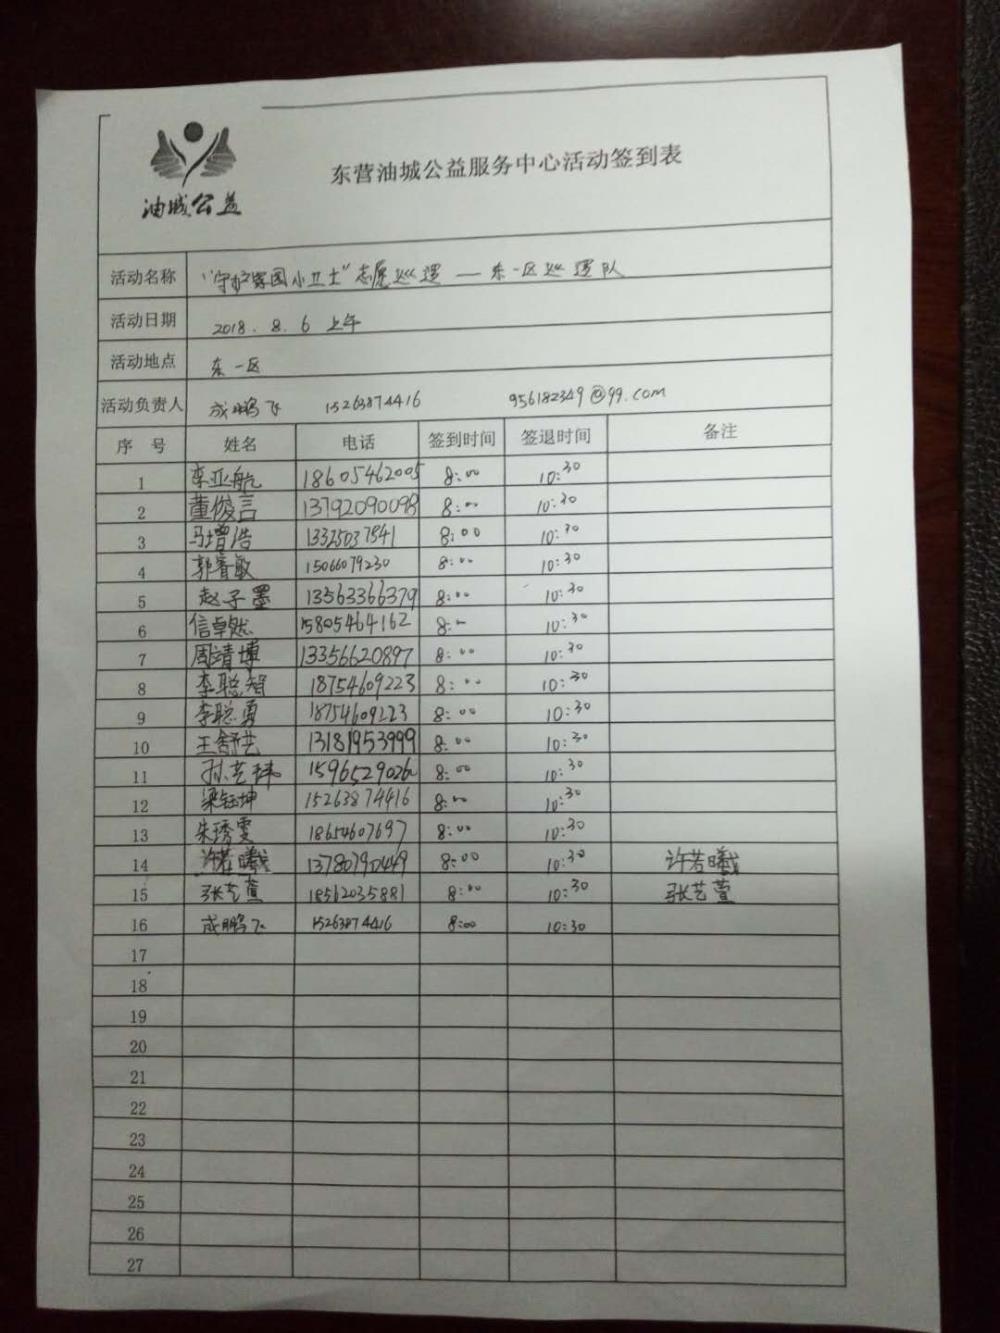 油城公益
东营油城公益服务中心活动签到表
活动名称 "守护家园小卫士"志愿巡逻——东一区巡逻队
活动日期 2018.8.6 上午
活动地点 东一区
活动负责人 成鹏飞 15263874416 956182349@qq.com
序号 姓名 电话 签到时间 签退时间 备注
1 李亚航 18605462005 8:00 10:30
2 董俊言 13792090098 8:00 10:30
3 马增浩 13325037841 8:00 10:30
4 郭睿敏 15066079230 8:00 10:30
5 赵子墨 13563366379 8:00 10:30
6 信卓然 15805464162 8:00 10:30
7 周靖博 13356620897 8:00 10:30
8 李聪智 18754609223 8:00 10:30
9 李聪勇 18754609223 8:00 10:30
10 王舒艺 13181953999 8:00 10:30
11 孙艺祎 15965290262 8:00 10:30
12 梁钰坤 15263874416 8:00 10:30
13 朱琇雯 18654607697 8:00 10:30
14 许若曦 13780790449 8:00 10:30 许若曦
15 张艺萱 18562035881 8:00 10:30 张艺萱
16 成鹏飞 15263874416 8:00 10:30
17
18
19
20
21
22
23
24
25
26
27